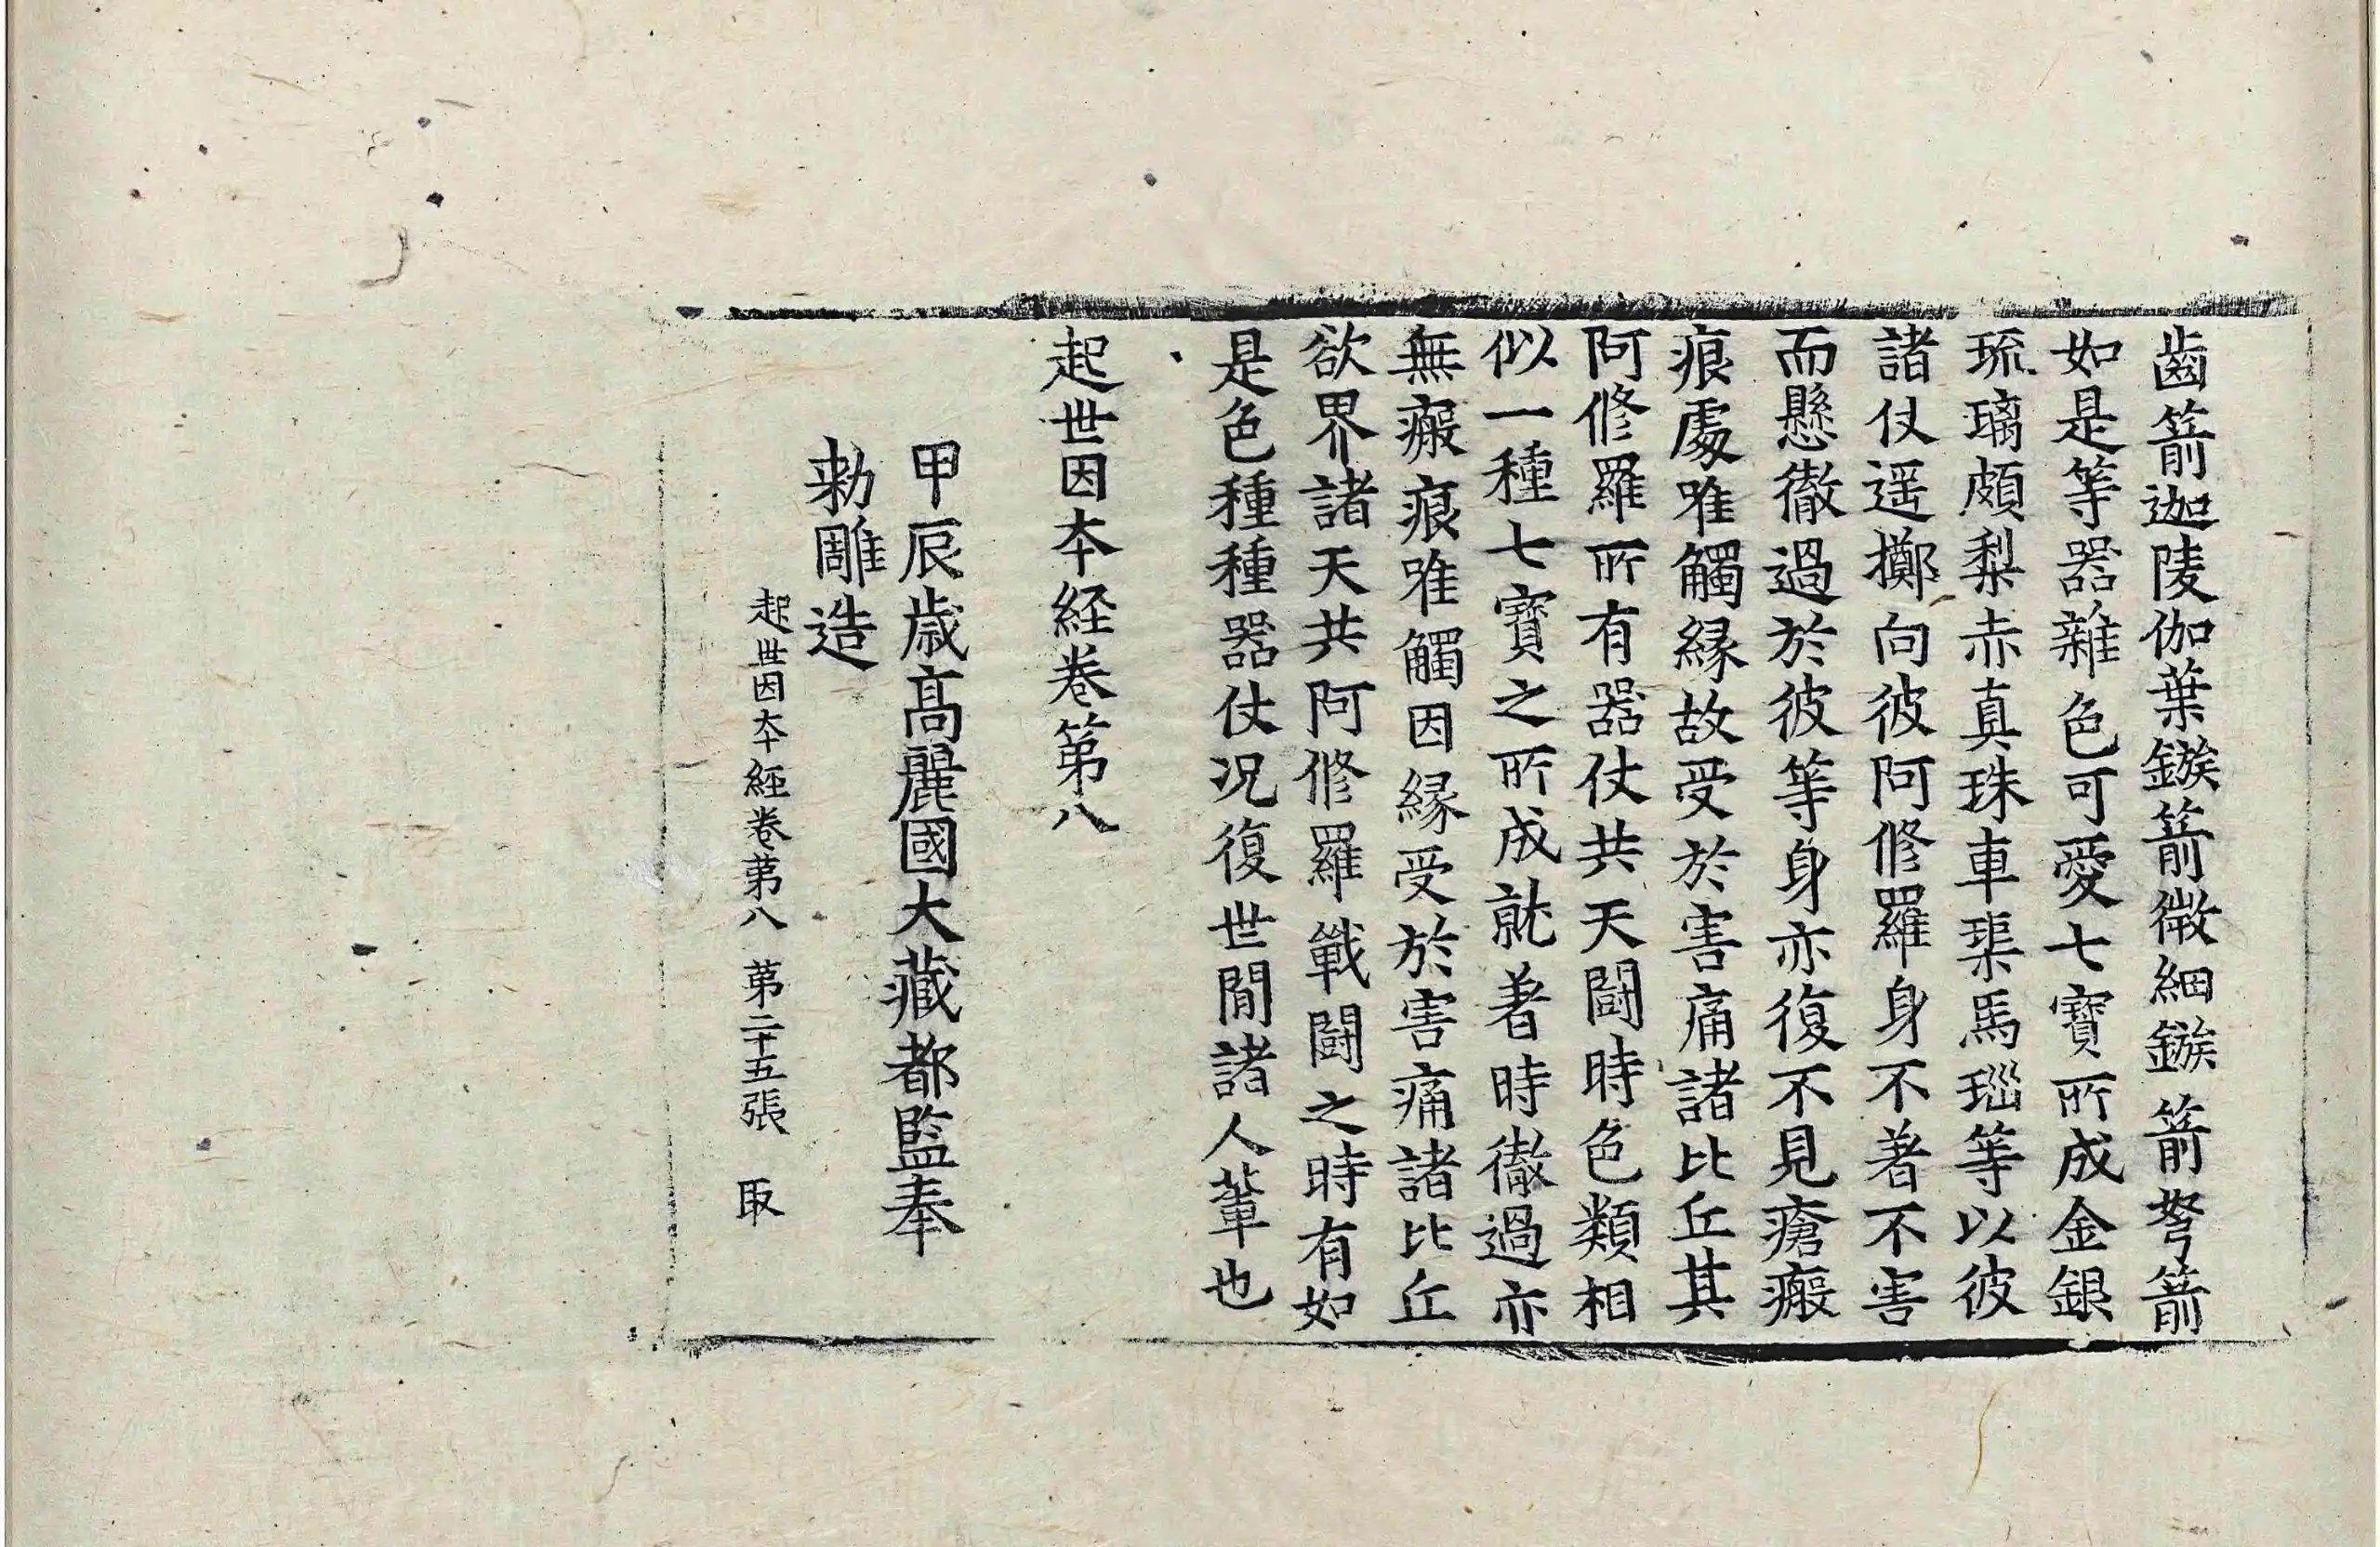 齒箭迦陵伽葉鏃箭微細鏃箭弩箭
如是等器雜色可愛七寶所成金銀
琉璃頗梨赤真珠車璖馬瑙等以彼
諸仗遥擲向彼阿修羅身不著不害
而懸徹過於彼等身亦復不見瘡瘢
痕處唯觸緣故受於害痛諸比丘其
阿修羅所有器仗共天鬪時色類相
似一種七寶之所成就著時徹過亦
無瘢痕唯觸因緣受於害痛諸比丘
欲界諸天共阿修羅戰鬪之時有如
是色種種器仗况復世閒諸人輩也
起世因本経卷第八
甲辰歳髙麗國大藏都監奉
勑雕造
起世因本經卷第八 第二十五張 取